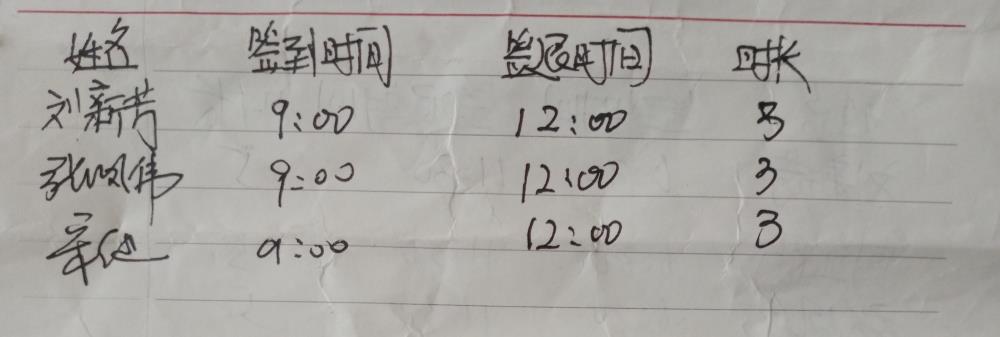 姓名 签到时间 签退时间 时长
刘新芳 9:00 12:00 3
张凤伟 9:00 12:00 3
9:00 12:00 3